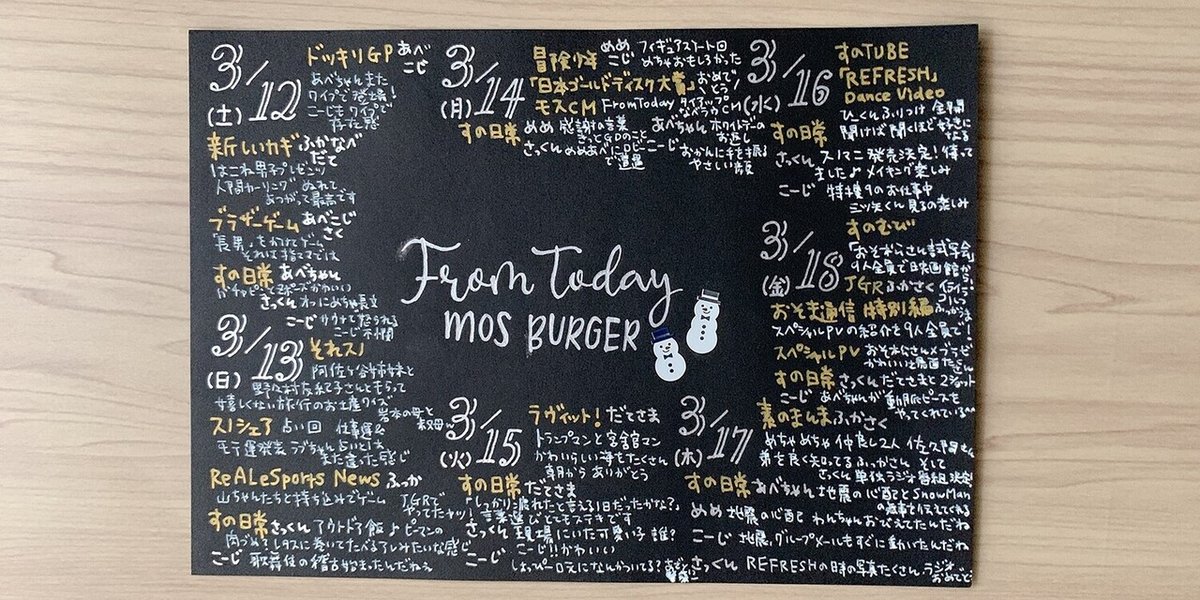 3/12
(土)
ドッキリGP あべ
こじ
あべちゃんまた
ワイプで登場!
こーじもワイプで
存在感
新しいカギ ふかなべ
だて
はこね男子プレゼンツ
人間カーリング ぬれて
あつがって最高です
ブラザーゲーム あべこじ
さく
「長男」をかけたゲーム
それは指ママでは
すの日常 あべちゃん
ガチャピンとはポーズかわいい
さっくん
こーじ サウナで怒られる
こーじ不機
3/13
(日)
それスノ
阿佐ヶ谷姉妹と
野沢村友紀子さんともらって
嬉しくない旅行のお土産クイズ
岩本の母と
叔母
スノシェア 占い回 仕事運&
モテ運発表 ラブちゃん占いとは
また違った感じ
ReALeSports News ふっか
山ちゃんたちと持ち込みでゲーム JGRで
やってたヤツ!
すの日常 さっくん アウトドア飯♪ピーマンの
肉づめてレタスに巻いてたべるアレみたいな感じ
こーじ 歌舞伎の稽古始まったんだねぇ
3/14
(月)
冒険少年 めめ
こじ フィギュアスケート回
めちゃおもしろかった
「日本ゴールドディスク大賞」おめで
とう!
モスCM From Today タイアップCM
なべラウ
すの日常 めめ 感謝の言葉
きっとGDのこと
あべちゃん ホワイトデーの
お返し
さっくん めめあべにロビー
で遭遇
こーじ おかんに手を振る
やさしい顔
From Today
MOS BURGER
3/15
(火)
ラヴィット! だてさま
トランプマンと宮舘マン
かわいらしい海をたくさん
朝からありがとう
すの日常 だてさま
「しっかり流れたと言える1日だったかな?」
言葉選びとてもステキです
さっくん 現場にいた可愛い子 誰?
こーじ!!かわいい
こーじ はっぴー口元になんかついてる?
3/16
(水)
すのTUBE
「REFRESH」
Dance Video
ひーくんふりつけ 全開
聞けば聞くほど好きに
なる
すの日常
さっくん スノマニ発売決定!待って
ました♪メイキング楽しみ
こーじ 特捜9のお仕事中
三ツ矢くん見るの楽しみ
3/17
(木)
素のまんま ふかさく
めちゃめちゃ仲良し2人 佐久間さん
弟を良く知ってるふかさん そして
さっくん 単独ラジオ番組決定
すの日常 あべちゃん 地震の心配とSnowMan
の返事を伝えてくれる
めめ 地震の心配 わんちゃんおびえてたんだね
こーじ 地震、グループメールもすぐに動いたんだね
さっくん REFRESHの日の写真たくさん、ラジオ
おめでと
3/18
(金)
すのむび
「おそ松さん試写会」
9人全員で映画館が
JGR ふかさく
おそ松通信 特別編
スペシャルPVの紹介を9人全員で!
スペシャルPV
すの日常 さっくん だてさまと2ショット
こーじ あべちゃんが 動脈ピースを
やってくれている